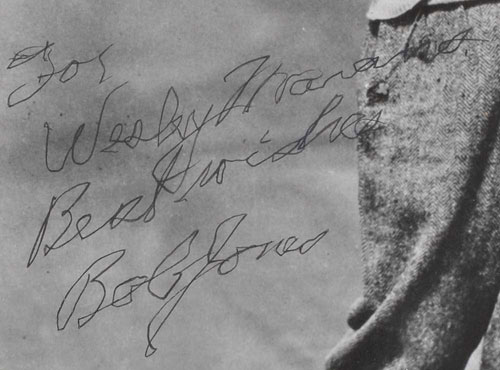 For
Wesley
Best wishes
Bob Jones